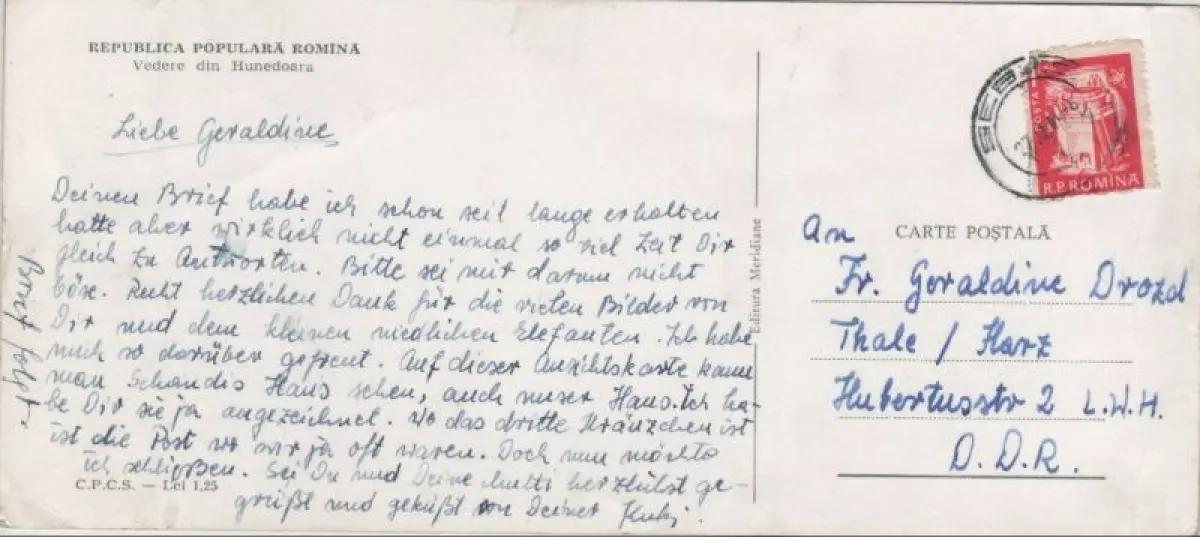 REPUBLICA POPULARĂ ROMÎNĂ
Vedere din Hunedoara
Liebe Geraldine
Deinen Brief habe ich schon seit lange erhalten
hatte aber wirklich nicht einmal so viel Zeit Dir
gleich zu Antworten. Bitte sei mir darum nicht
böse. Recht herzlichen Dank für die vielen Bilder von
Dir und dem kleinen niedlichen Elefanten. Ich habe
mich so darüber gefreut. Auf dieser Ansichtskarte kann
man Schandis Haus sehen, auch unser Haus. Ich ha-
be Dir sie ja angezeichnet. Wo das dritte Kränzchen ist
ist die Post wo wir ja oft waren. Doch nun möchte
ich schließen. Sei Du und Deine Mutti herzlichst ge-
grüßt und geküßt von Deiner
Brief folgt
C.P.C.S. — Lei 1,25
Editura Meridiane
POSTA
R.P.ROMÎNA
CARTE POŞTALĂ
An
Fr. Geraldine Drozd
Thale / Harz
Hubertusstr 2 L.W.H.
D.D.R.